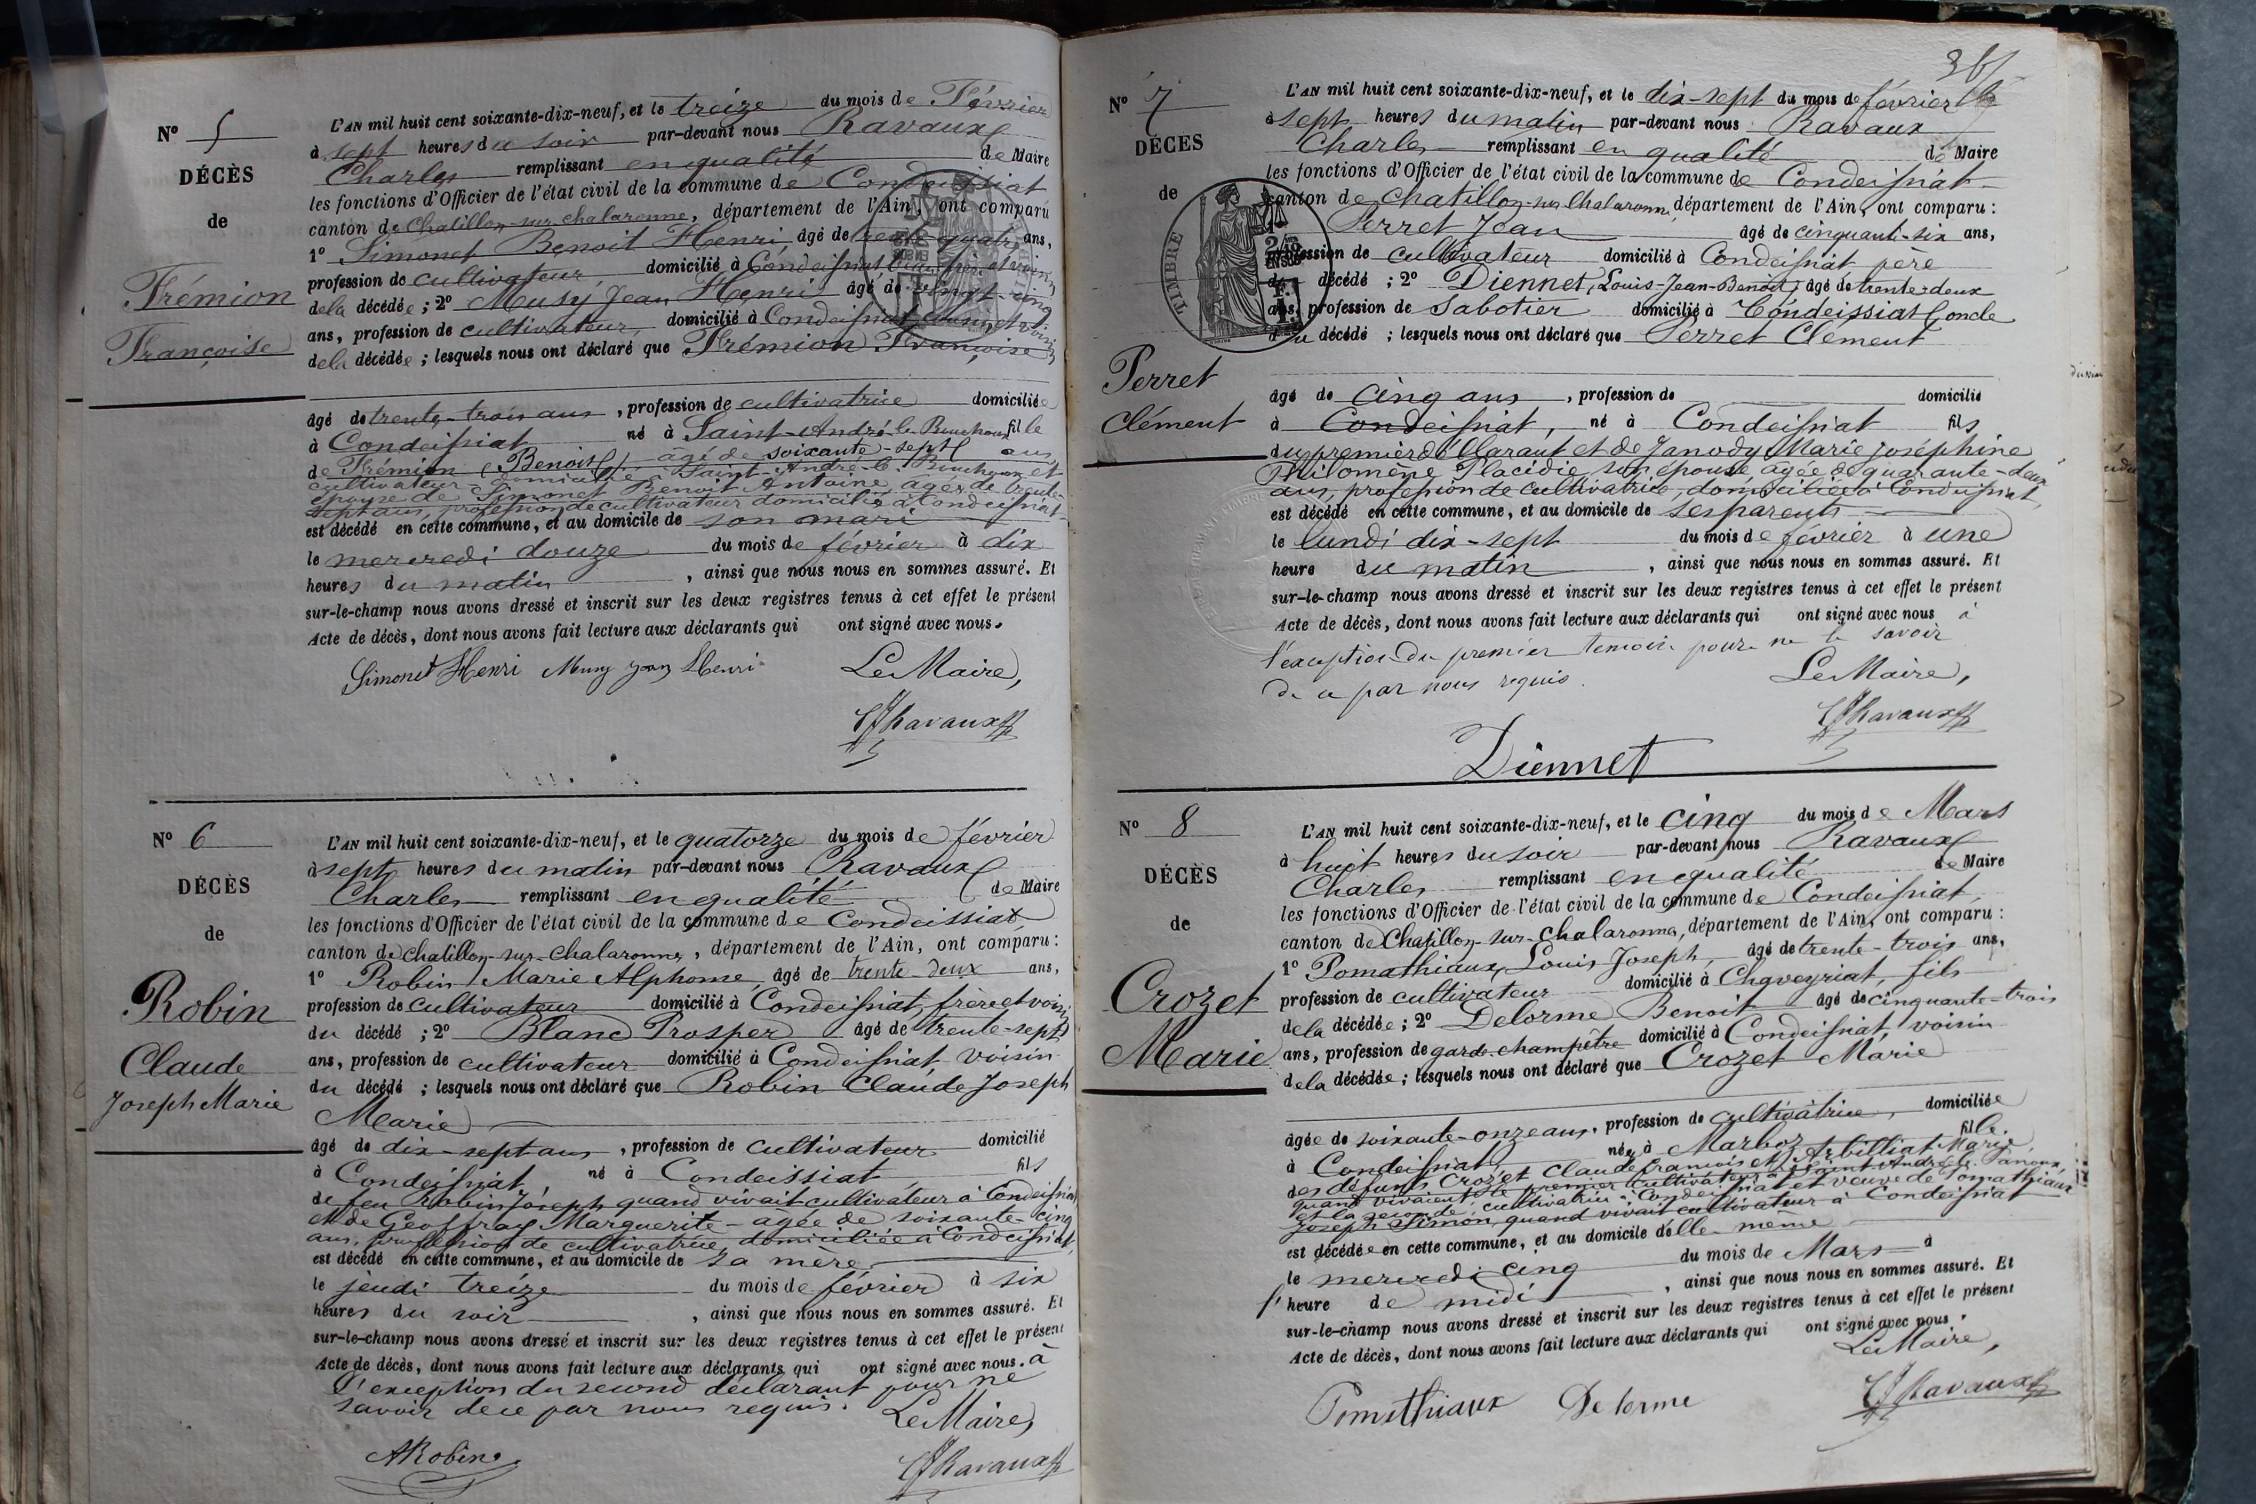 N° 5
DÉCÈS
de
Trémion
Françoise
L'AN mil huit cent soixante-dix-neuf, et le treize du mois de Février
à sept heures du soir par-devant nous Ravaux
Charles remplissant en qualité de Maire
les fonctions d'Officier de l'état civil de la commune de Condeissiat
canton de Chatillon-sur-chalaronne, département de l'Ain, ont comparu
1° Simonet Benoit Henri, âgé de trente quatre ans,
profession de cultivateur domicilié à Condeissiat beau frère et voisin
de la décédée ; 2° Musy Jean Henri âgé de vingt-cinq
ans, profession de cultivateur, domicilié à Condeissiat, et voisin
de la décédée ; lesquels nous ont déclaré que Trémion Françoise
âgé de trente-trois ans, profession de cultivatrice domiciliée
à Condeissiat né à Saint-André-le-Bouchoux fille
de Trémion (Benoit) âgé de soixante-sept ans,
cultivateur domicilié à Saint-André-le-Bouchoux et
épouse de Simonet Benoit Antoine, agée de trente-
sept ans, profession de cultivateur domicilié à Condeissiat
est décédé en cette commune, et au domicile de son mari
le mercredi douze du mois de février à dix
heures du matin, ainsi que nous nous en sommes assuré. Et
sur-le-champ nous avons dressé et inscrit sur les deux registres tenus à cet effet le présent
Acte de décès, dont nous avons fait lecture aux déclarants qui ont signé avec nous.
Simonet Henri Musy jean Henri Le Maire,
Ravaux
N° 6
DÉCÈS
de
Robin
Claude
Joseph Marie
L'AN mil huit cent soixante-dix-neuf, et le quatorze du mois de février
à sept heures du matin par-devant nous Ravaux
Charles remplissant en qualité de Maire
les fonctions d'Officier de l'état civil de la commune de Condeissiat,
canton de chatillon-sur-chalaronne, département de l'Ain, ont comparu :
1° Robin Marie Alphonse, âgé de trente-deux ans,
profession de cultivateur domicilié à Condeissiat, frère et voisin
du décédé ; 2° Blanc Prosper âgé de trente-sept
ans, profession de cultivateur domicilié à Condeissiat voisin
du décédé ; lesquels nous ont déclaré que Robin Claude Joseph
Marie
âgé de dix-sept ans, profession de cultivateur domicilié
à Condeissiat, né à Condeissiat fils
de feu Robin Joseph quand vivait cultivateur à Condeissiat
et de Geoffray Marguerite - âgée de soixante-cinq
ans, profession de cultivatrice, domiciliée à Condeissiat,
est décédé en cette commune, et au domicile de sa mère
le jeudi treize du mois de février à six
heures du soir, ainsi que nous nous en sommes assuré. Et
sur-le-champ nous avons dressé et inscrit sur les deux registres tenus à cet effet le présent
Acte de décès, dont nous avons fait lecture aux déclarants qui ont signé avec nous. à
l'exception du second déclarant pour ne
savoir de ce par nous requis. Le Maire,
ARobin
Ravaux
N° 7
DÉCÈS
de
TIMBRE
Perret
Clément
L'AN mil huit cent soixante-dix-neuf, et le dix-sept du mois de février
à sept heures du matin par-devant nous Ravaux
Charles remplissant en qualité de Maire
les fonctions d'Officier de l'état civil de la commune de Condeissiat
canton de chatillon-sur-Chalaronne, département de l'Ain, ont comparu :
Perret Jean âgé de cinquante-six ans,
profession de cultivateur domicilié à Condeissiat père
du décédé ; 2° Diennet, Louis-Jean-Benoit, âgé de trente-deux
ans, profession de Sabotier domicilié à Condeissiat oncle
du décédé ; lesquels nous ont déclaré que Perret Clément
âgé de cinq ans, profession de domicilié
à Condeissiat, né à Condeissiat fils
du premier déclarant et de Janody Marie Joséphine
Philomène Placidie, son épouse agée de quarante-deux
ans, profession de cultivatrice, domiciliée à Condeissiat
est décédé en cette commune, et au domicile de ses parents
le lundi dix-sept du mois de février à une
heure du matin, ainsi que nous nous en sommes assuré. Et
sur-le-champ nous avons dressé et inscrit sur les deux registres tenus à cet effet le présent
Acte de décès, dont nous avons fait lecture aux déclarants qui ont signé avec nous à
l'exception du premier temoin pour ne le savoir
de ce par nous requis. Le Maire,
Ravaux
Diennet
N° 8
DÉCÈS
de
Crozet
Marie
L'AN mil huit cent soixante-dix-neuf, et le cinq du mois de Mars
à huit heures du soir par-devant nous Ravaux
Charles remplissant en qualité de Maire
les fonctions d'Officier de l'état civil de la commune de Condeissiat,
canton de Chatillon-sur-chalaronne, département de l'Ain, ont comparu :
1° Pomathiaux, Louis Joseph, âgé de trente-trois ans,
profession de cultivateur domicilié à Chaveyriat, fils
de la décédée ; 2° Delorme Benoit âgé de cinquante-trois
ans, profession de garde-champêtre domicilié à Condeissiat, voisin
de la décédée ; lesquels nous ont déclaré que Crozet Marie
âgée de soixante-onze ans, profession de cultivatrice, domiciliée
à Condeissiat, née à Marboz fille
des défunts Crozet Claude francois et Arbilliat Marie
quand vivaient le premier cultivateur à Saint André le Panoux
et la seconde, cultivatrice à Condeissiat et veuve de Pomathiaux
Joseph Simon, quand vivait cultivateur à Condeissiat
est décédée en cette commune, et au domicile d'elle même
le mercredi cinq du mois de Mars à
l'heure de midi, ainsi que nous nous en sommes assuré. Et
sur-le-champ nous avons dressé et inscrit sur les deux registres tenus à cet effet le présent
Acte de décès, dont nous avons fait lecture aux déclarants qui ont signé avec nous.
Le Maire,
Pomathiaux Delorme Ravaux